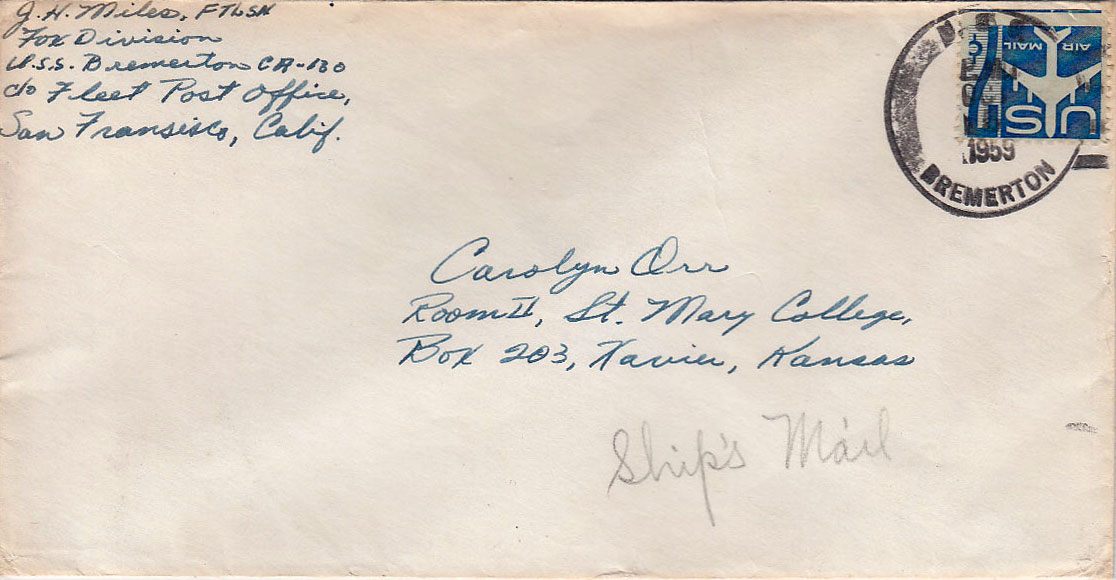 J. H. Miles, FTLSN
Fox Division
U.S.S. Bremerton CA-130
c/o Fleet Post Office,
San Fransisco, Calif.
U.S.S.
1959
BREMERTON
7¢
AIR MAIL
US
Carolyn Orr
Room II, St. Mary College,
Box 203, Xavier, Kansas
Ship's Mail